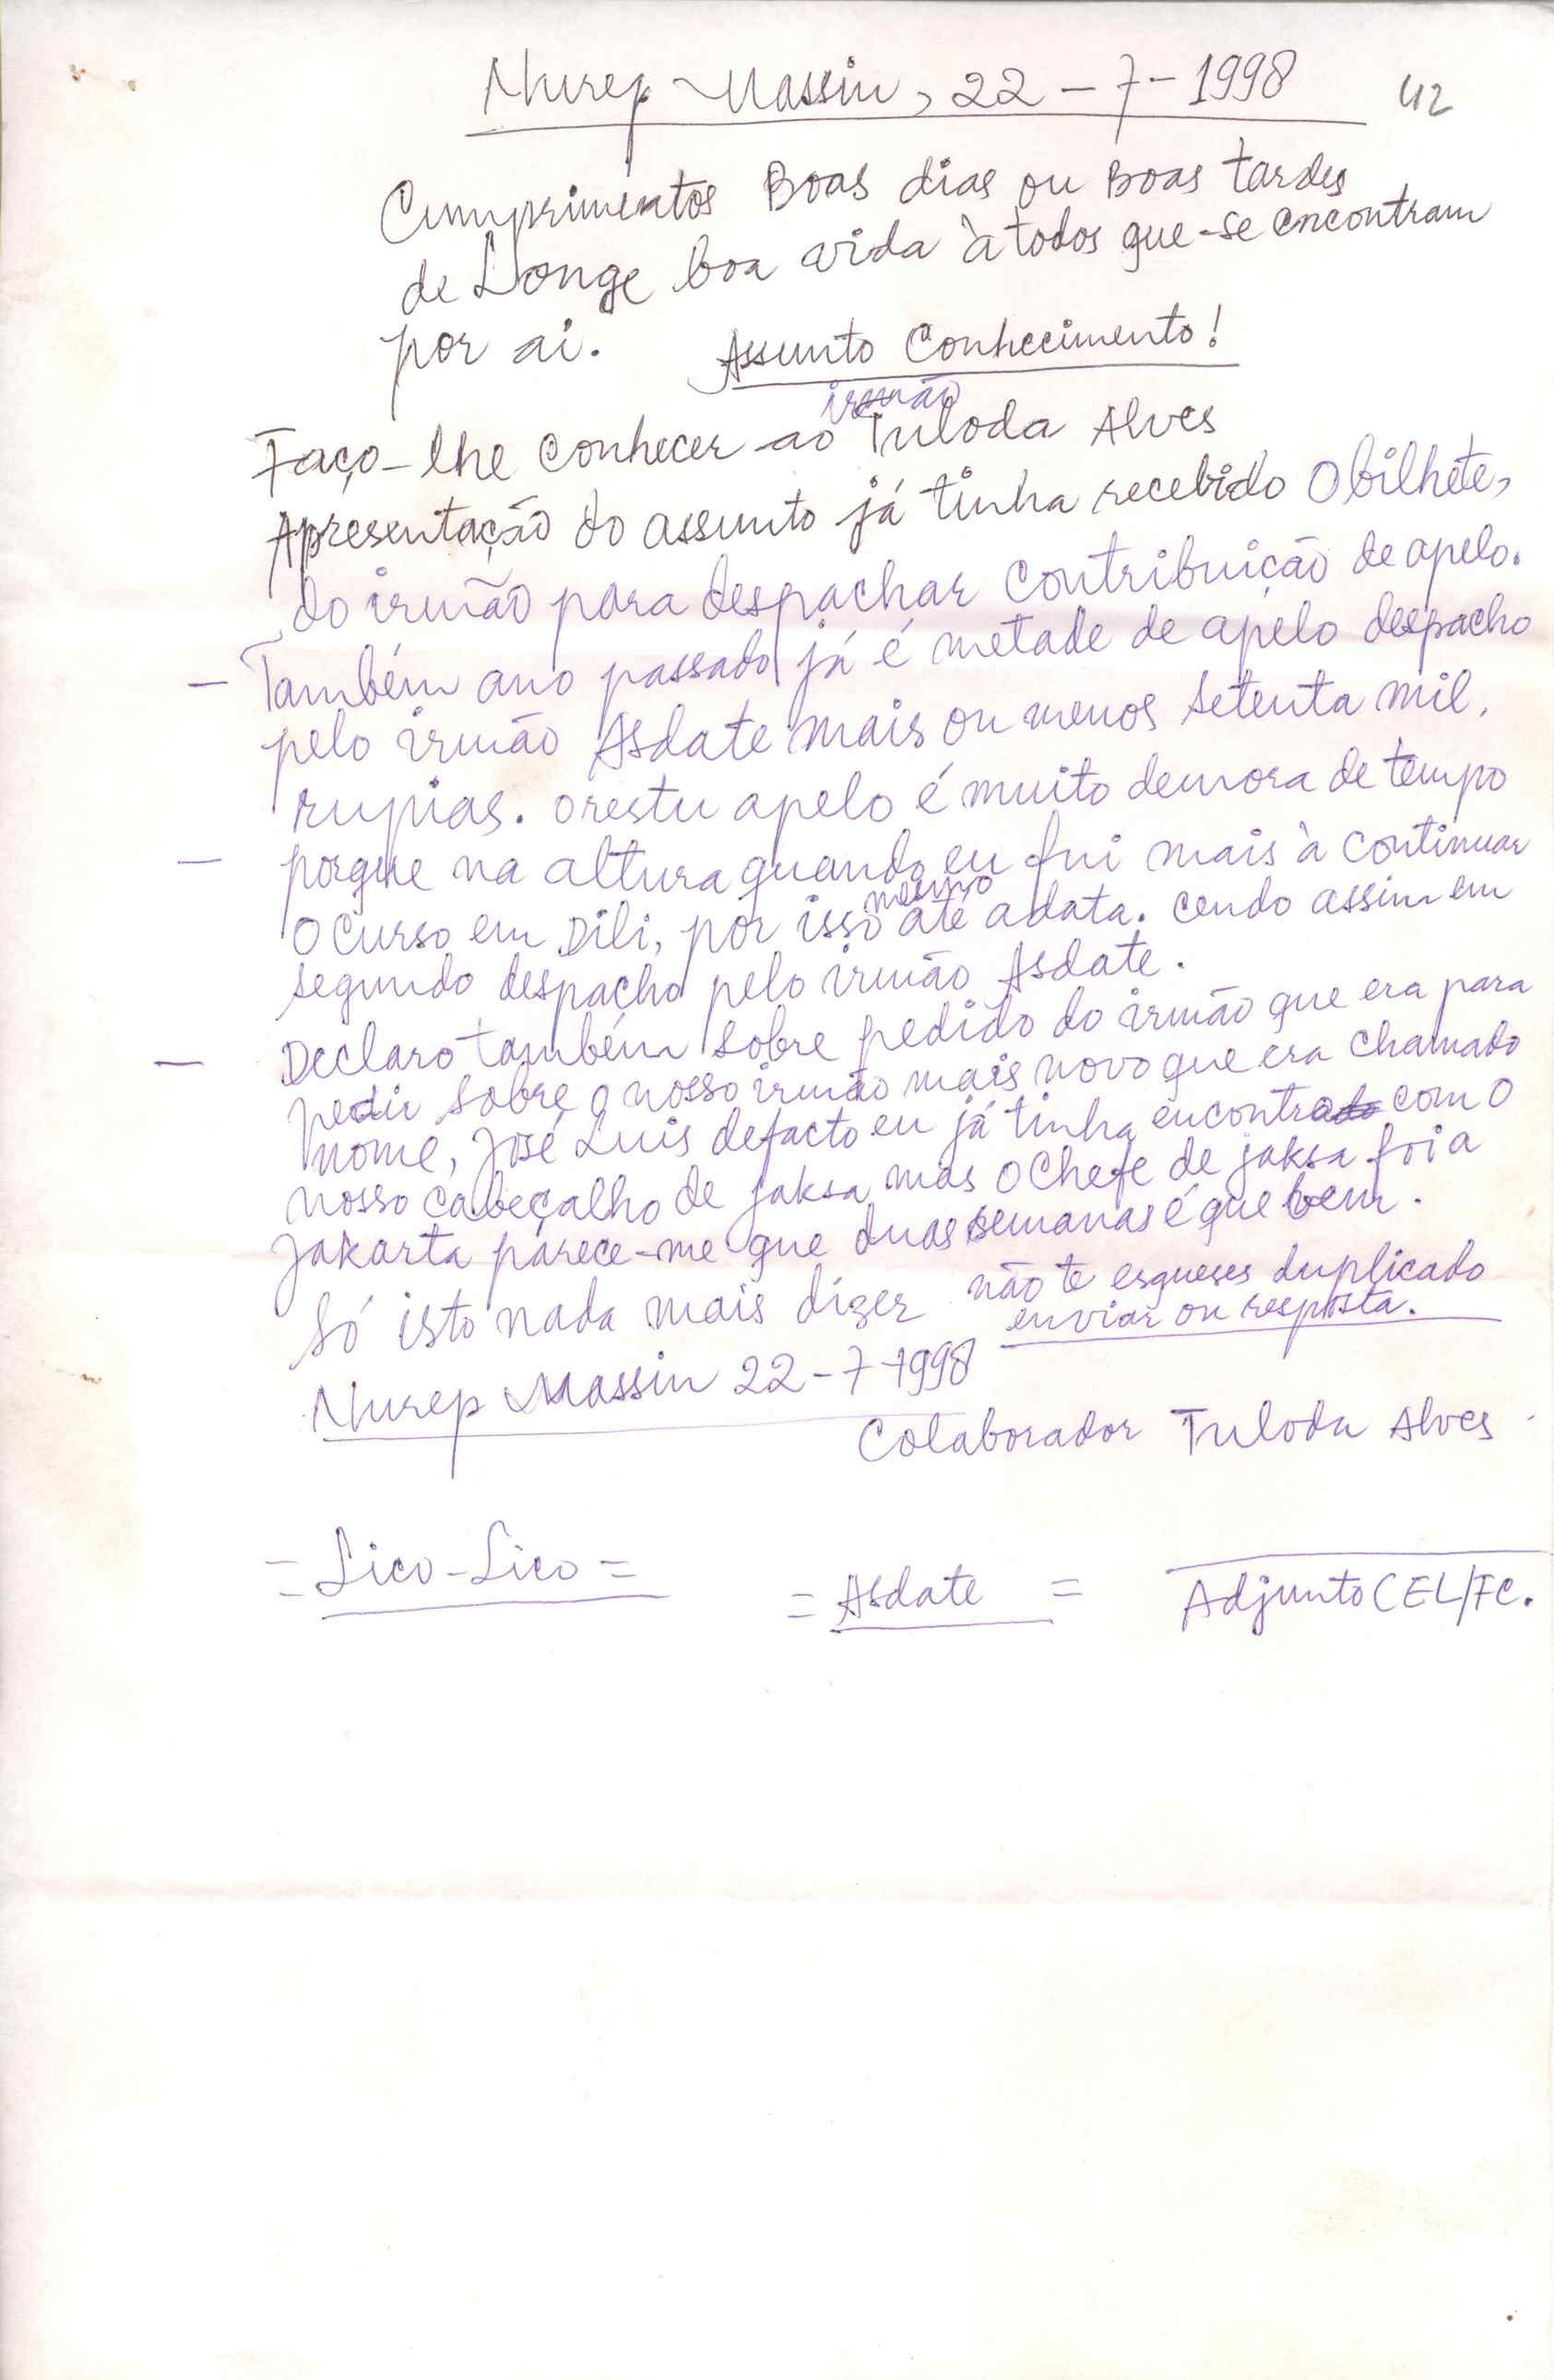 Nurep Massin, 22-7-1998 42
Cumprimentos Boas dias ou Boas tardes
de Longe boa vida à todos que-se encontram
por ai. Assunto Conhecimento!
irmão
Faço-lhe conhecer ao Tuloda Alves
Apresentação do assunto já tinha recebido O bilhete,
do irmão para despachar contribuição de apelo.
- Também ano passado já é metade de apelo despacho
pelo irmão Asdate mais ou menos setenta mil,
rupias. o restu apelo é muito demora de tempo
- porque na altura quando eu fui mais à continuar
mesmo
O curso em Dili, por isso até a data. cendo assim em
segundo despacho pelo irmão Asdate.
- Declaro também sobre pedido do irmão que era para
pedir sobre o nosso irmão mais novo que era chamado
nome, José Luis defacto eu já tinha encontrado com O
nosso cabeçalho de jaksa mas O Chefe de jaksa foi a
Jakarta parece-me que duas semanas é que bem.
Só isto nada mais dizer não te esqueses duplicado
enviar ou resposta.
Nurep Massin 22-7-1998
Colaborador Tuloda Alves
= Lico-Lico =
= Asdate = Adjunto CEL/FC.